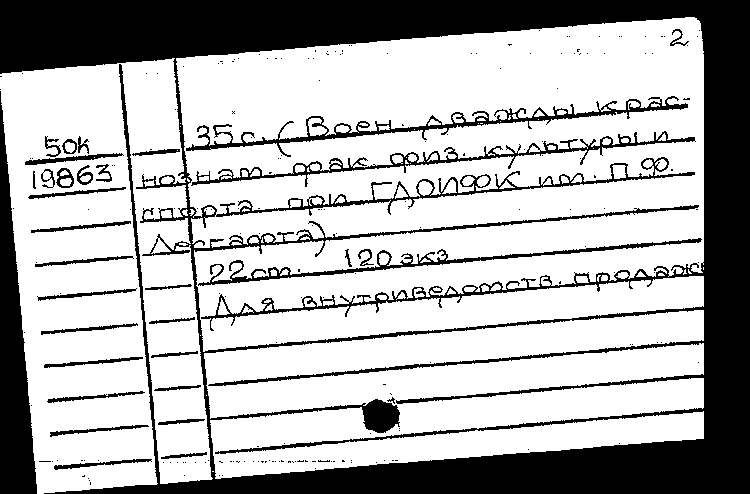 2
50к 35 с. (Воен. дважды крас-
19863 нознам. фак. физ. культуры и
спорта при ГДОИФК им. П.Ф.
Лесгафта).
22 см. 120 экз
Для внутриведомств. продаж